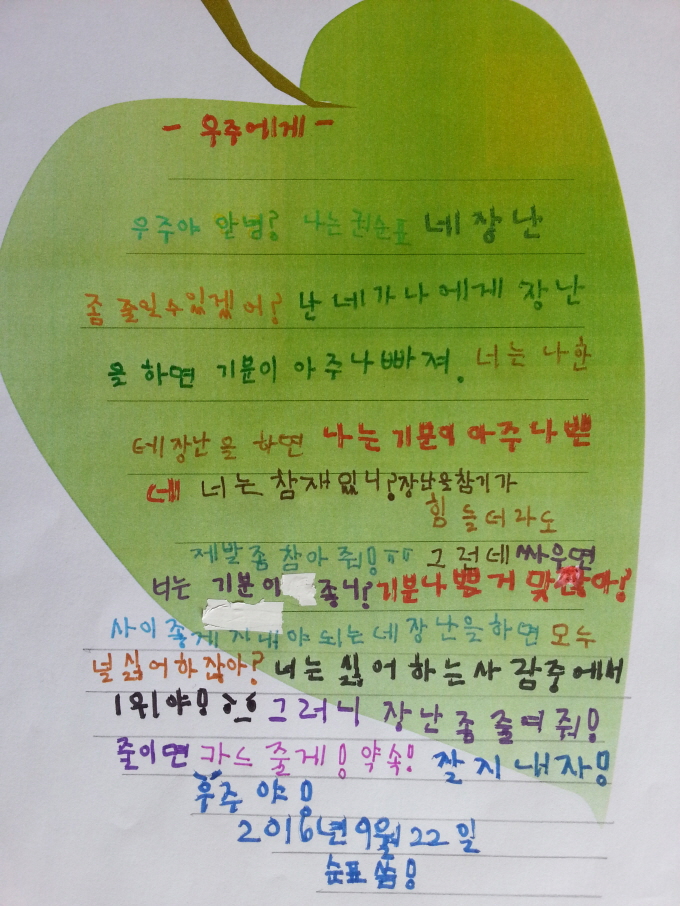 - 우주에게 -
우주야 안녕? 나는권순표 네장난
좀 줄일수있겠어? 난 네가나에게 장난
을 하면 기분이 아주나빠져. 너는 나한
테장난을 하면 나는기분이 아주나쁜
데 너는 참재있니?장난을참기가
힘들더라도
제발좀참아줘!ㅠㅠ 그런데싸우면
너는 기분이 좋니?기분나쁘거 맞잖아?
사이좋게 지내야 되는데장난을하면 모두
널싫어하잖아? 너는싫어하는사람중에서
1위야! 그러니 장난좀줄여줘!
줄이면 카드줄게! 약속! 잘지내자!
우주야!
2016년9월22일
순표씀!